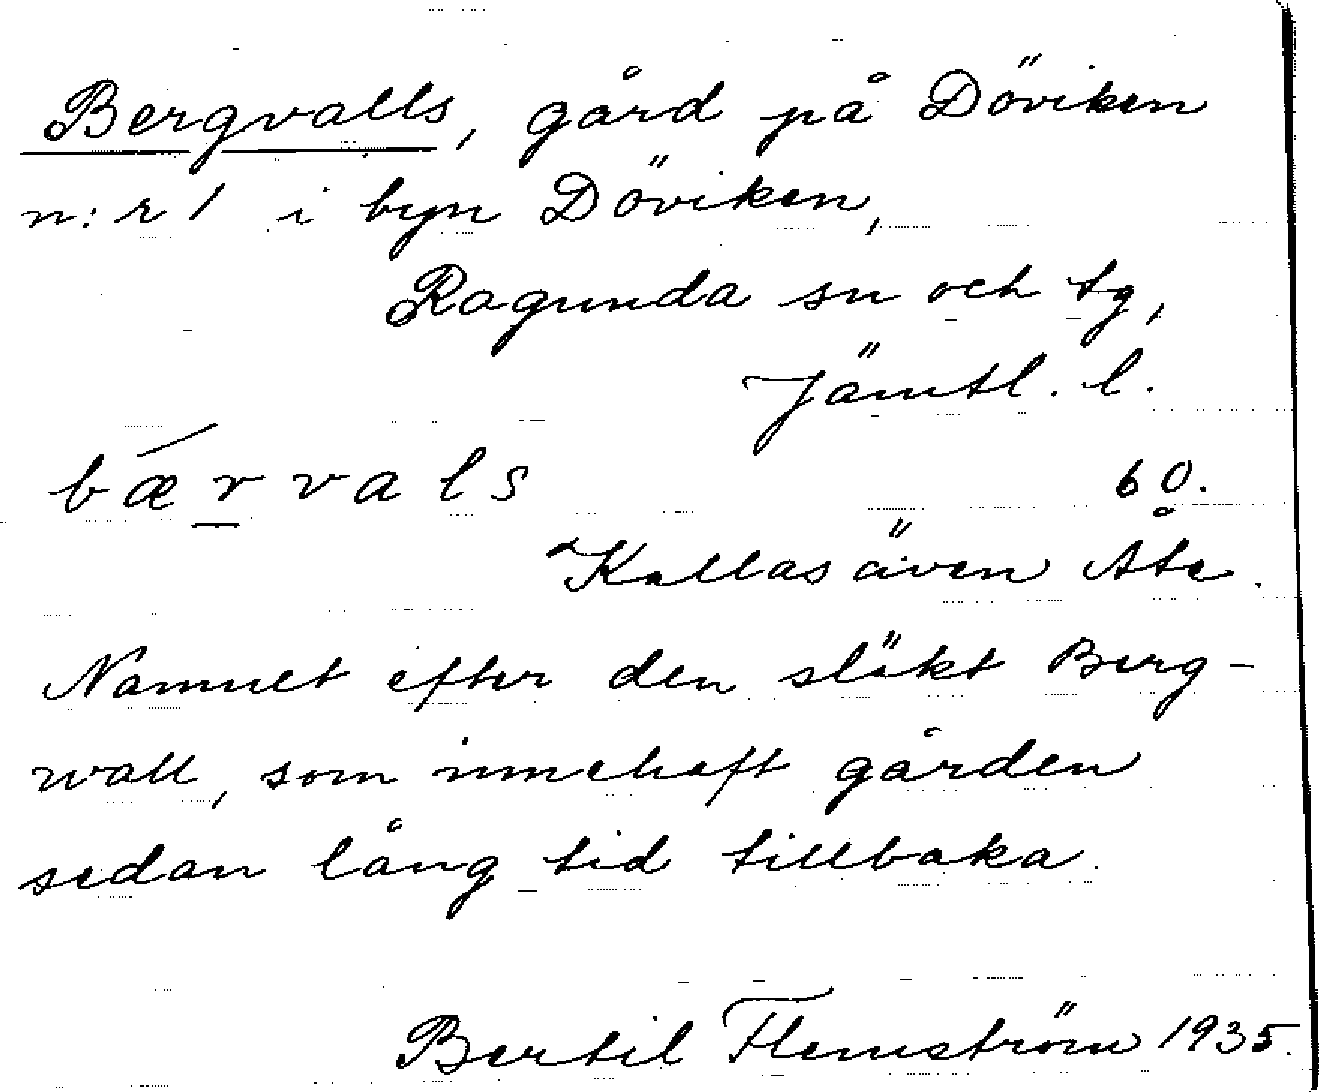 Bergvalls, gård på Döviken
n:r 1 i byn Döviken,
Ragunda sn och tg,
Jämtl. l.
bærvals 60.
Kallas även Åte.
Namnet efter den släkt Berg-
wall, som innehaft gården
sedan lång tid tillbaka.
Bertil Flemström 1935.